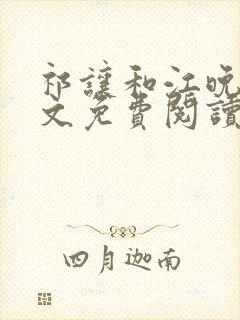 祁讓和江晚
文免費閱讀
四月迦南